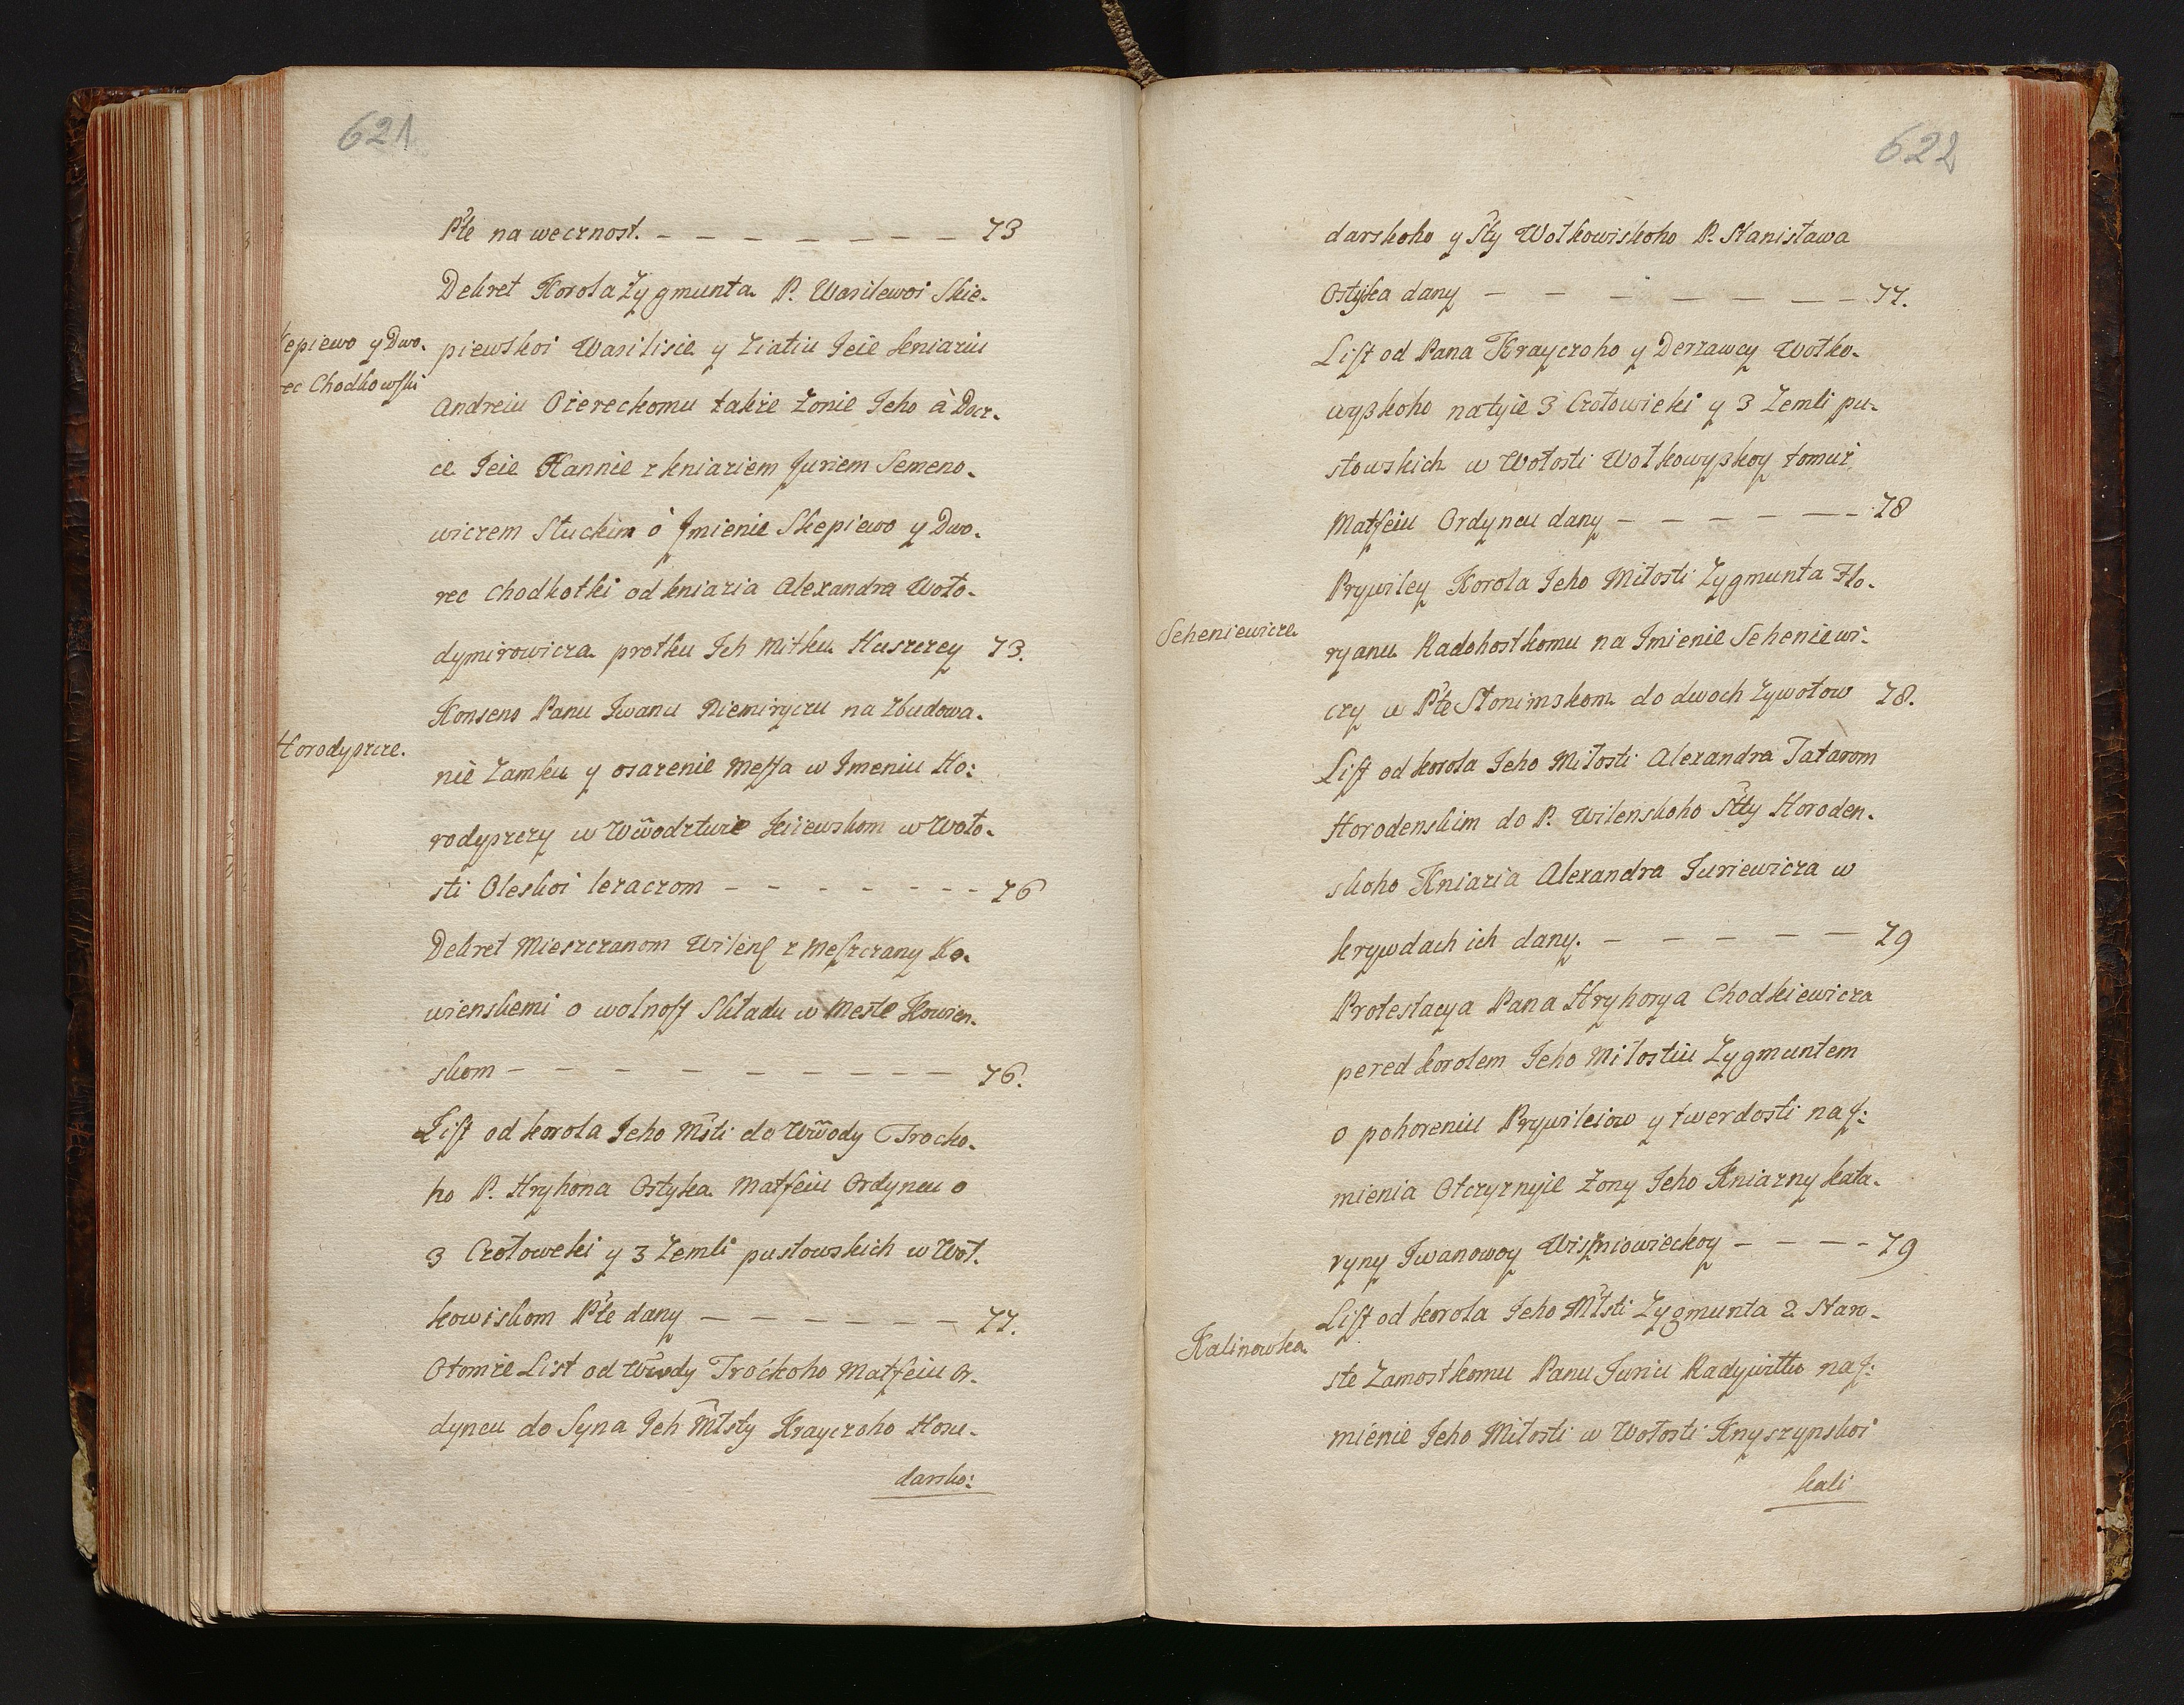 621
Pte na wecznost. – – – – – – – 73
Dekret Korola Zygmunta P. Wasilewoi Skie-
piewskoi Wasilisie y Ziatiu Jeie kniaziu
epiewo y Dwo.
ec Chodkowski
Andreiu Ożereckomu także Żonie Jeho à Docz-
ce Jeie Hannie z kniaziem Juriem Semeno-
wiczem Słuckim ò Jmienie Skepiewo y Dwo-
rec Chodkotki od kniazia Alexandra Woło-
dymirowicza protku Jeh Mitku Huszczey 73.
Konsens Panu Jwanu Niemiryczu na Zbudowa-
Horodyszcze.
niè Zamku y osazenie Mesta w Jmeniu Ho:
rodyszczy w Wwodztwie Kiiewskom w Woło-
sti Oleskoi lezaczom – – – – – – – 76
Dekret Mieszczanom Wilens z Meszczany Ko-
wienskemi o wolnost Składu w Meste Kowien-
skom – – – – – – – – – 76.
List od korola Jeho Msti do Wwody Trocko-
ho P. Hryhora Ostyka Matfeiu Ordyncu o
3 Czołoweki y 3 Zemli pustowskich w Woł-
kowiskom Pte dany – – – – – – 77.
Otomże List od Wwody Trockoho Matfeiu Or-
dyncu do Syna Jeh Młsty Krayczoho Hosu-
darsko:
622
darskoho y Sty Wołkowiskoho P. Stanisława
Ostyka dany – – – – – – – 77.
List od Pana Krayczoho y Derzawcy Wołko-
wyskoho natyie 3 Czołowieki y 3 Zemli pu-
stowskich w Wołosti Wołkowyskoy tomuż
Matfeiu Ordyncu dany – – – – – – 78
Prywiley Korola Jeho Miłosti Zygmunta Flo-
Seheniewicze
ryanu Radohostkomu na Jmienie Seheniewi-
czy w Pte Słonimskom do dwoch Zywotow 78.
List od korola Jeho Miłosti Alexandra Tatarom
Horodenskim do P. Wilenskoho Stty Horoden-
skoho Kniazia Alexandra Juriewicza w
krywdach ich dany. – – – – – 79
Protestacya Pana Hryhorya Chodkiewicza
pered korolem Jeho Miłostiu Zygmuntem
o pohoreniu Prywileiow y twerdosti na J:
mienia Otczyznyie Zony Jeho Kniazny kata-
ryny Jwanowoy Wiszniowieckoy – – – – 79
List od korola Jeho Młsti Zygmunta 2 Staro-
Kalinowka
ste Zamostkomu Panu Juriu Radywiłłu na J:
mienie Jeho Miłosti w Wołosti Knyszynskoi
kali